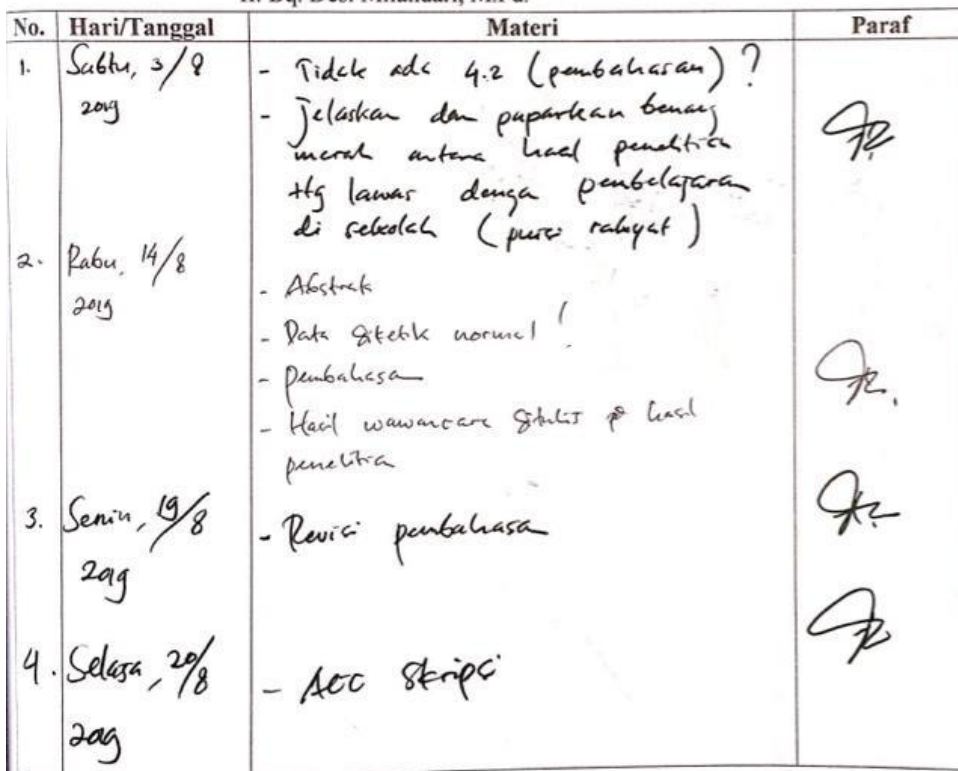 II. Bq. Desi Milandari, M.Pd.
No. Hari/Tanggal Materi Paraf
1. Sabtu, 3/8 2019
- Tidak ada 4.2 (pembahasan) ?
- Jelaskan dan paparkan benang
merah antara hasil penelitian
ttg lawas dengan pembelajaran
di sekolah (puisi rakyat)
2. Rabu, 14/8 2019
- Abstrak
- Data diketik normal !
- Pembahasan
- Hasil wawancara ditulis hasil
penelitian
3. Senin, 19/8 2019
- Revisi pembahasan
4. Selasa, 20/8 2019
- ACC Skripsi